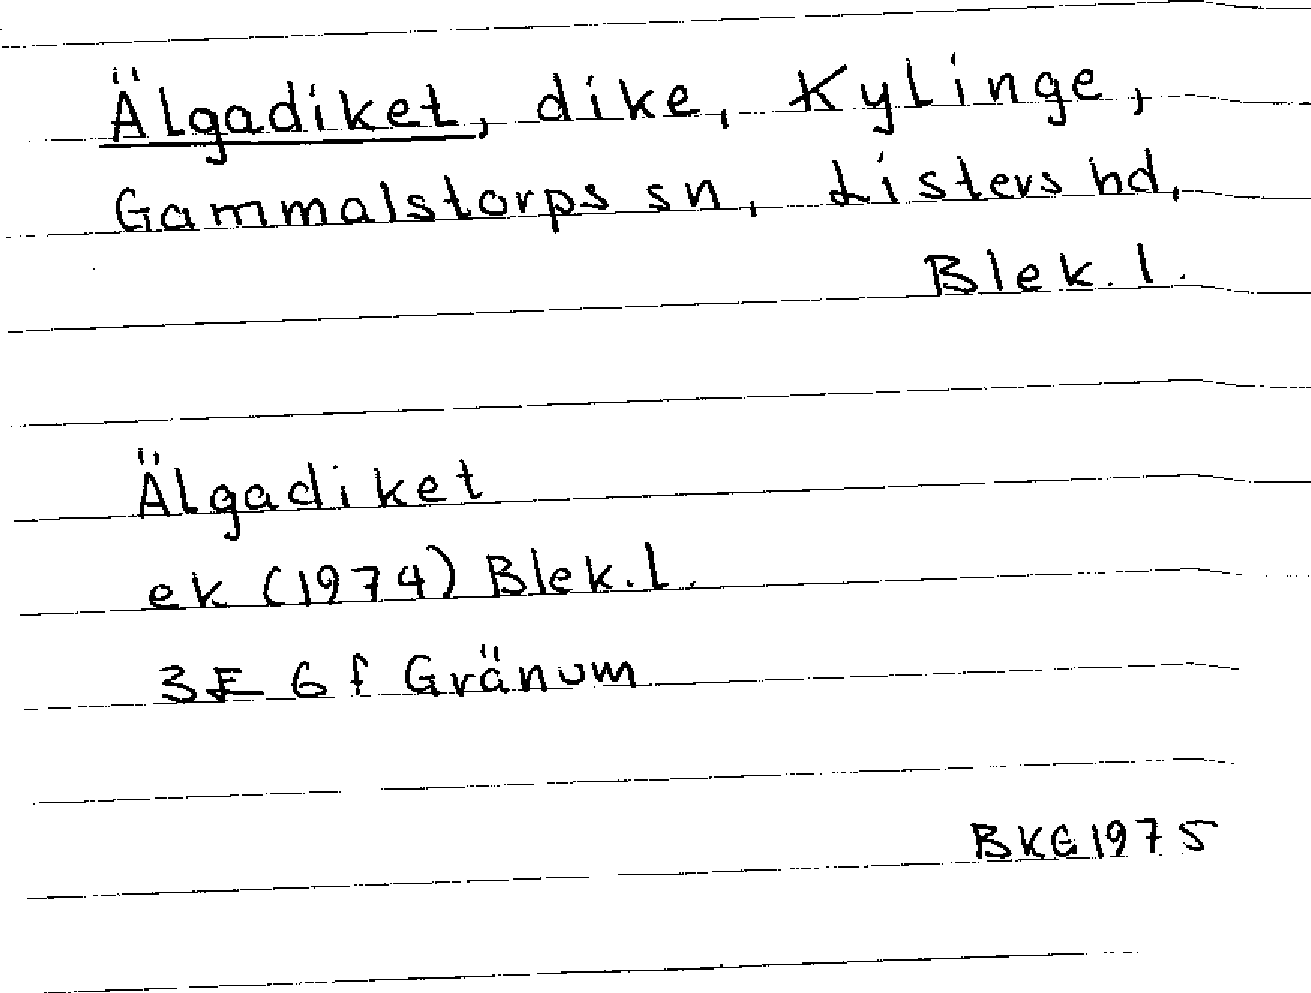 Älgadiket, dike, Kylinge,
Gammalstorps sn, Listers hd,
Blek. l.
Älgadiket
ek (1974) Blek. l.
3E 6f Gränum
BKG 1975